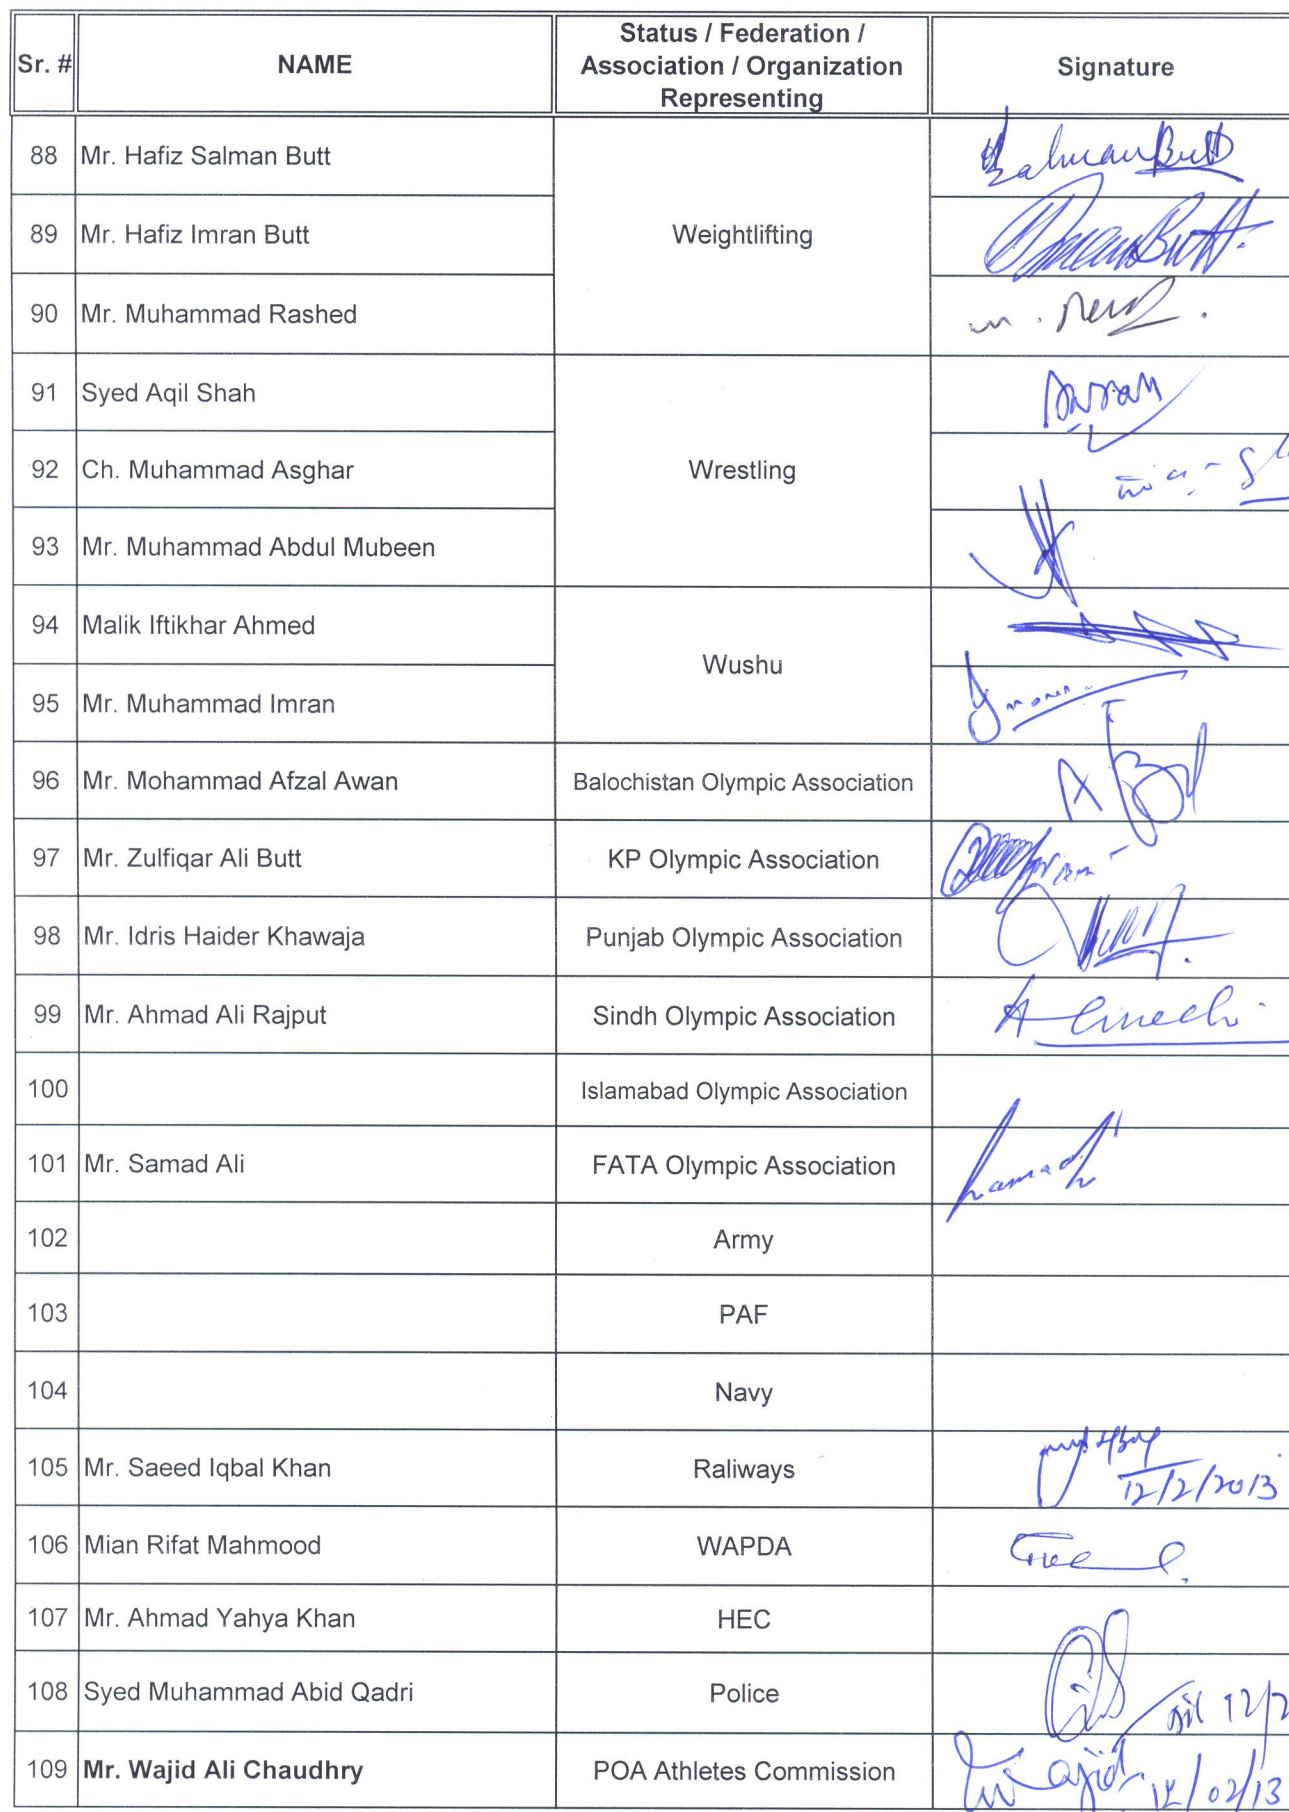 Sr. # NAME Status / Federation / Association / Organization Representing Signature
88 Mr. Hafiz Salman Butt Salman Butt
89 Mr. Hafiz Imran Butt Weightlifting Imran Butt
90 Mr. Muhammad Rashed
91 Syed Aqil Shah
92 Ch. Muhammad Asghar Wrestling
93 Mr. Muhammad Abdul Mubeen
94 Malik Iftikhar Ahmed
Wushu
95 Mr. Muhammad Imran
96 Mr. Mohammad Afzal Awan Balochistan Olympic Association
97 Mr. Zulfiqar Ali Butt KP Olympic Association
98 Mr. Idris Haider Khawaja Punjab Olympic Association
99 Mr. Ahmad Ali Rajput Sindh Olympic Association
100 Islamabad Olympic Association
101 Mr. Samad Ali FATA Olympic Association
102 Army
103 PAF
104 Navy
105 Mr. Saeed Iqbal Khan Raliways 12/2/2013
106 Mian Rifat Mahmood WAPDA
107 Mr. Ahmad Yahya Khan HEC
108 Syed Muhammad Abid Qadri Police 12/2
109 Mr. Wajid Ali Chaudhry POA Athletes Commission Wajid 12/02/13